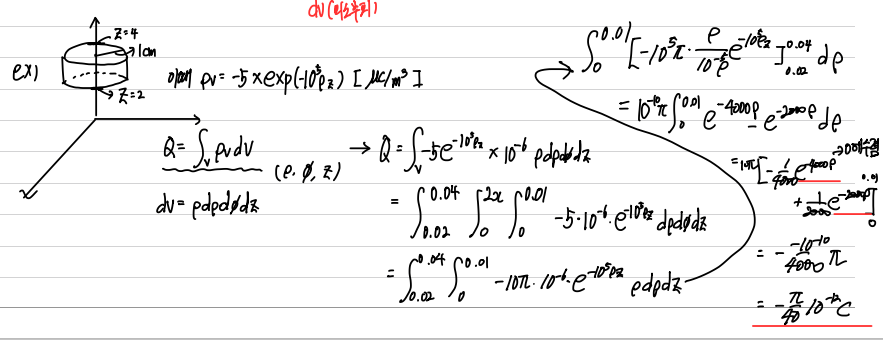 dv(미소부피)
ex)
z=4
1cm
z=2
이때 ρv = -5 × exp(-10⁵ρz) [μC/m³]
Q = ∫ᵥ ρv dv
(ρ, ø, z)
dv = ρdρdødz
→ Q = ∫ᵥ -5e^{-10⁵ρz} × 10⁻⁶ ρdρdødz
= ∫_{0.02}^{0.04} ∫_0^{2π} ∫_0^{0.01} -5·10⁻⁶·e^{-10⁵ρz} ρdρdødz
= ∫_{0.02}^{0.04} ∫_0^{0.01} -10π·10⁻⁶·e^{-10⁵ρz} ρdρdz
∫_0^{0.01} [-10⁻⁵π · ρ/10⁻⁵ρ e^{-10⁵ρz}]_{0.02}^{0.04} dρ
= 10⁻¹⁰π ∫_0^{0.01} e^{-4000ρ} - e^{-2000ρ} dρ
= 10⁻¹⁰π [-1/4000 e^{-4000ρ} → 0에 수렴
+ 1/2000 e^{-2000ρ}]_0^{0.01}
= - -10⁻¹⁰/4000 π
= - π/40 10⁻¹² C